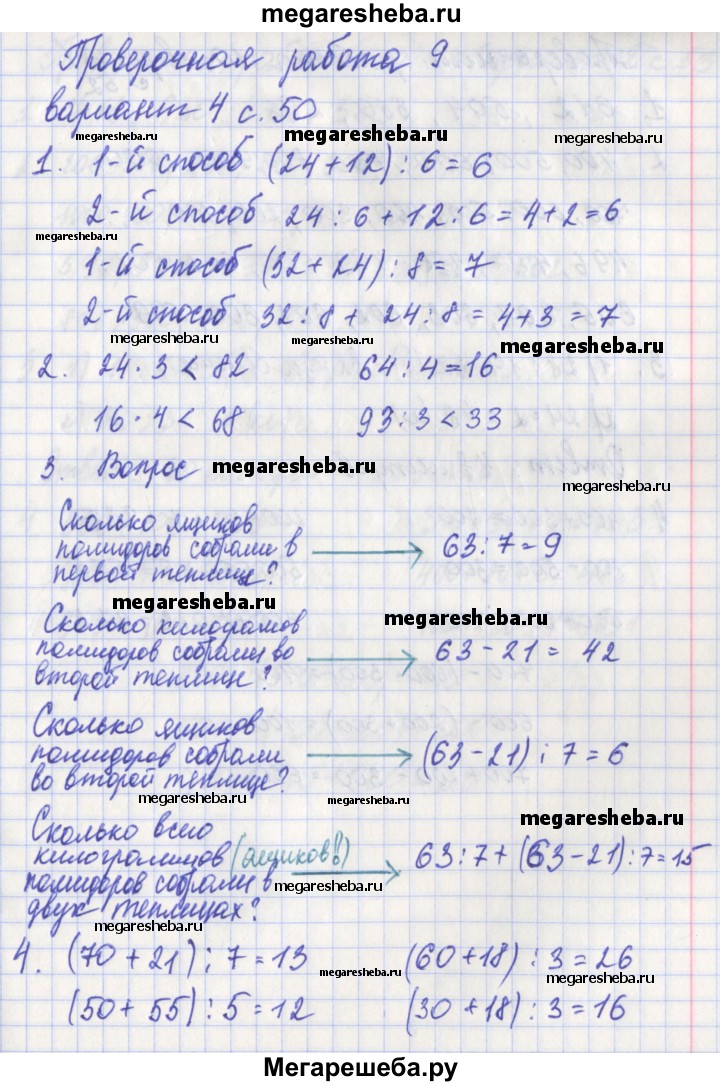 megaresheba.ru
Проверочная работа 9
вариант 4 с. 50
megaresheba.ru megaresheba.ru megaresheba.ru
1. 1-й способ (24+12) : 6 = 6
2-й способ 24 : 6 + 12 : 6 = 4+2 = 6
megaresheba.ru
1-й способ (32+24) : 8 = 7
2-й способ 32 : 8 + 24 : 8 = 4+3 = 7
megaresheba.ru megaresheba.ru
2. 24 · 3 < 82 64 : 4 = 16
16 · 4 < 68 93 : 3 < 33
3. Вопрос megaresheba.ru
megaresheba.ru
Сколько ящиков
помидоров собрали в → 63 : 7 = 9
первой теплице?
megaresheba.ru megaresheba.ru
Сколько килограмов
помидоров собрали во → 63 - 21 = 42
второй теплице?
Сколько ящиков
помидоров собрали → (63-21) : 7 = 6
во второй теплице?
megaresheba.ru megaresheba.ru
megaresheba.ru
Сколько всего
килограммов (ящиков!) → 63 : 7 + (63-21) : 7 = 15
помидоров собрали в megaresheba.ru
двух теплицах?
megaresheba.ru
4. (70+21) : 7 = 13 (60+18) : 3 = 26
megaresheba.ru megaresheba.ru
(50+55) : 5 = 12 (30+18) : 3 = 16
Мегарешеба.ру